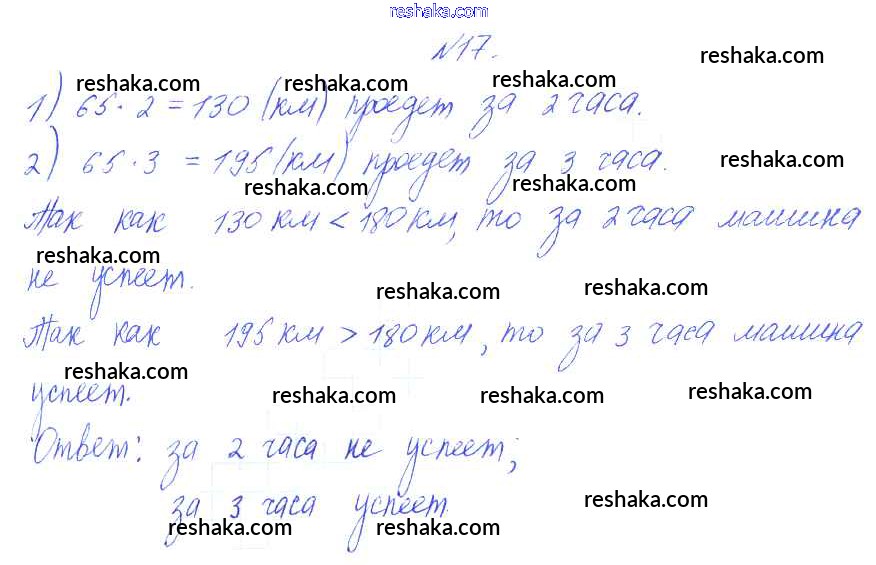 reshaka.com
№17.
reshaka.com
reshaka.com reshaka.com reshaka.com
1) 65·2=130 (км) проедет за 2 часа.
2) 65·3 =195 (км) проедет за 3 часа.
reshaka.com
reshaka.com reshaka.com
Так как 130 км < 180 км, то за 2 часа машина
reshaka.com
не успеет.
reshaka.com reshaka.com
Так как 195 км > 180 км, то за 3 часа машина
reshaka.com
успеет.
reshaka.com reshaka.com reshaka.com
Ответ: за 2 часа не успеет;
за 3 часа успеет
reshaka.com
reshaka.com reshaka.com